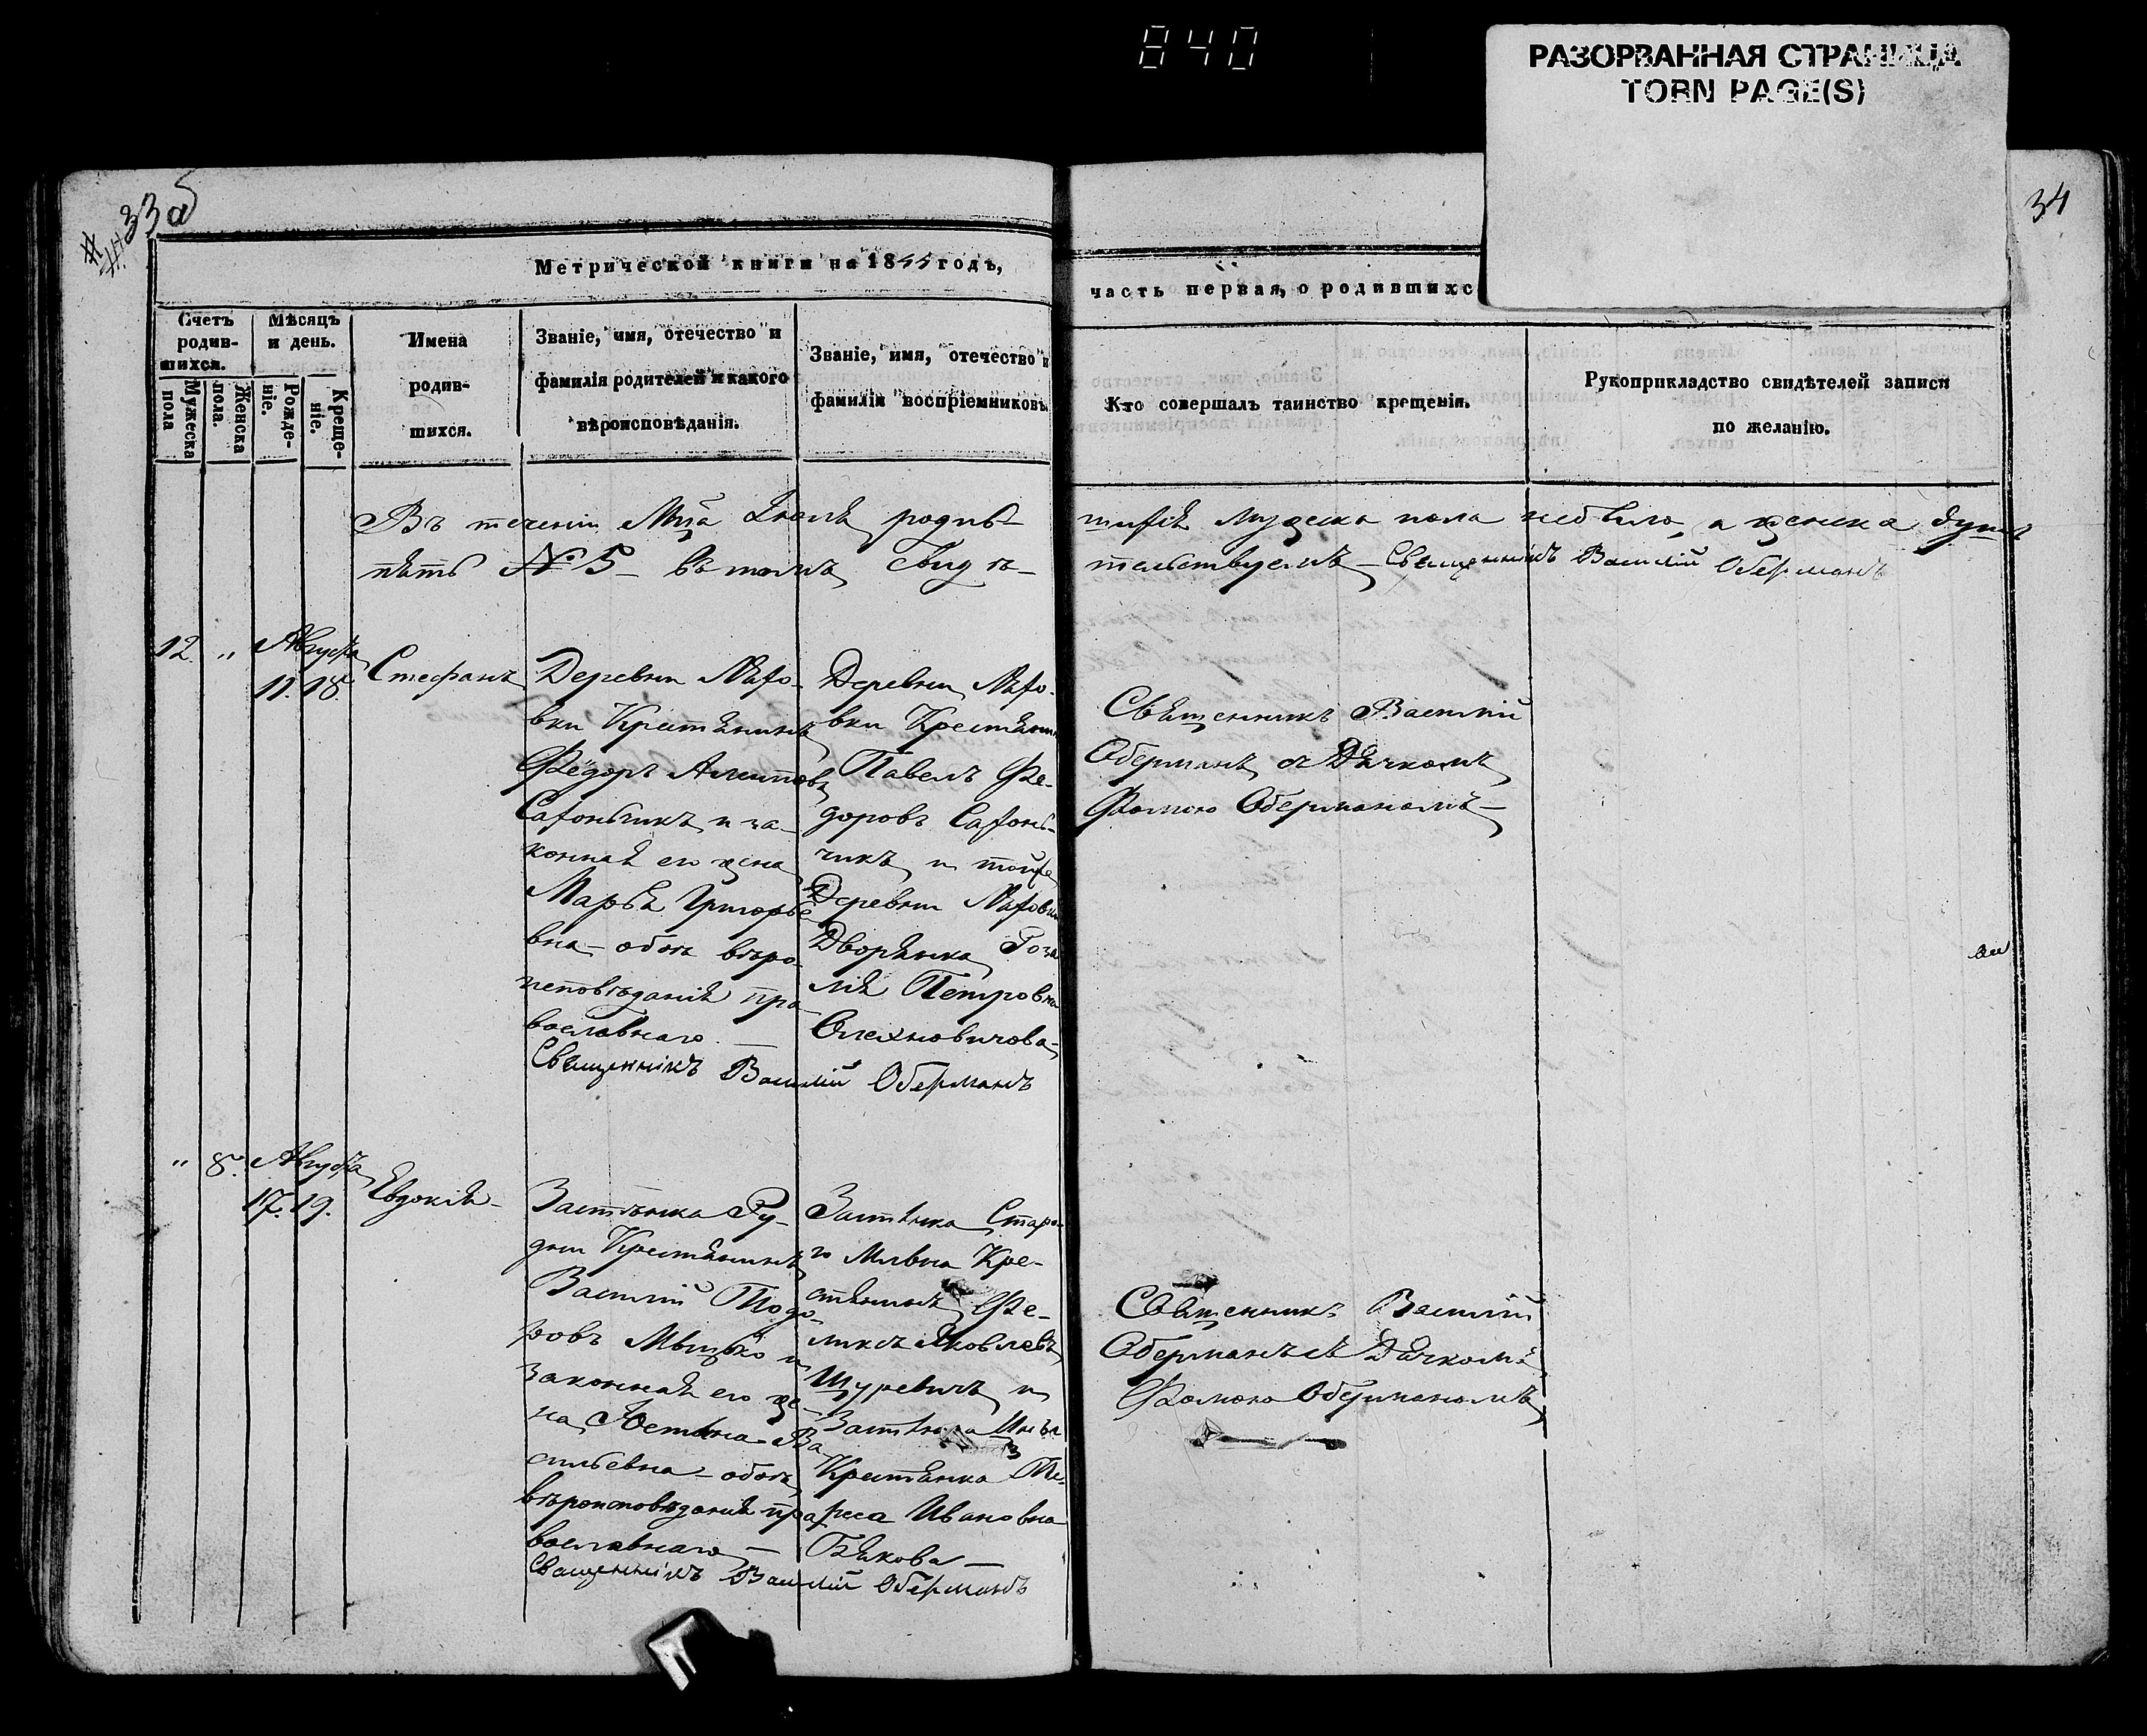 840
РАЗОРВАННАЯ СТРАНИЦА
TORN PAGE(S)
33 об
34
Метрической книги на 1844 годъ,
часть первая, о родившихс
Счетъ родившихся.
Мужеска пола
Женска пола.
Мѣсяцъ и день.
Рожденіе.
Крещеніе.
Имена
родив-
шихся.
Званіе, имя, отечество и
фамилія родителей и какого
вѣроисповѣданія.
Званіе, имя, отечество и
фамилія воспріемниковъ.
Кто совершалъ таинство крещенія.
Рукоприкладство свидѣтелей записи
по желанію.
Въ теченіи Мца Іюля родив-
шихся мужеска пола небыло, а женска душъ
пять № 5 - въ томъ свидѣ-
тельствуемъ - Священникъ Василій Оберманъ
12. " Августа
11. 18.
Стефанъ
Деревни
вки Крестьянинъ
Ѳёдоръ
и за-
конная его жена
Марья Григорье
вна - обоя вѣро-
исповѣданія пра-
вославнаго. -
Деревни
вки Крестьянинъ
Павелъ Ѳе-
доровъ
чикъ и тойже
Деревни
Дворянка Роза
лія Петровна
Олехновичова -
Священникъ Василій Оберманъ
Священникъ Василій
Оберманъ съ Дячкомъ
Ѳомою Оберманомъ -
" 8. Августа
17. 19.
Евдокія -
Застѣнка Ру-
дни Крестьянинъ
Василій Тодо-
ровъ и
законная его же-
на Юстина Ва
сильевна - обоя
вѣроисповѣданія пра
вославнаго -
Застѣнка Стара-
го Млына Кре-
стьянинъ Ѳе-
ликсъ Яковлевъ
Щуревичъ и
Застѣнка
Крестьянка Те-
реса Ивановна
Бякова -
Священникъ Василій Оберманъ
Священникъ Василій
Оберманъ съ Дячкомъ
Ѳомою Оберманомъ